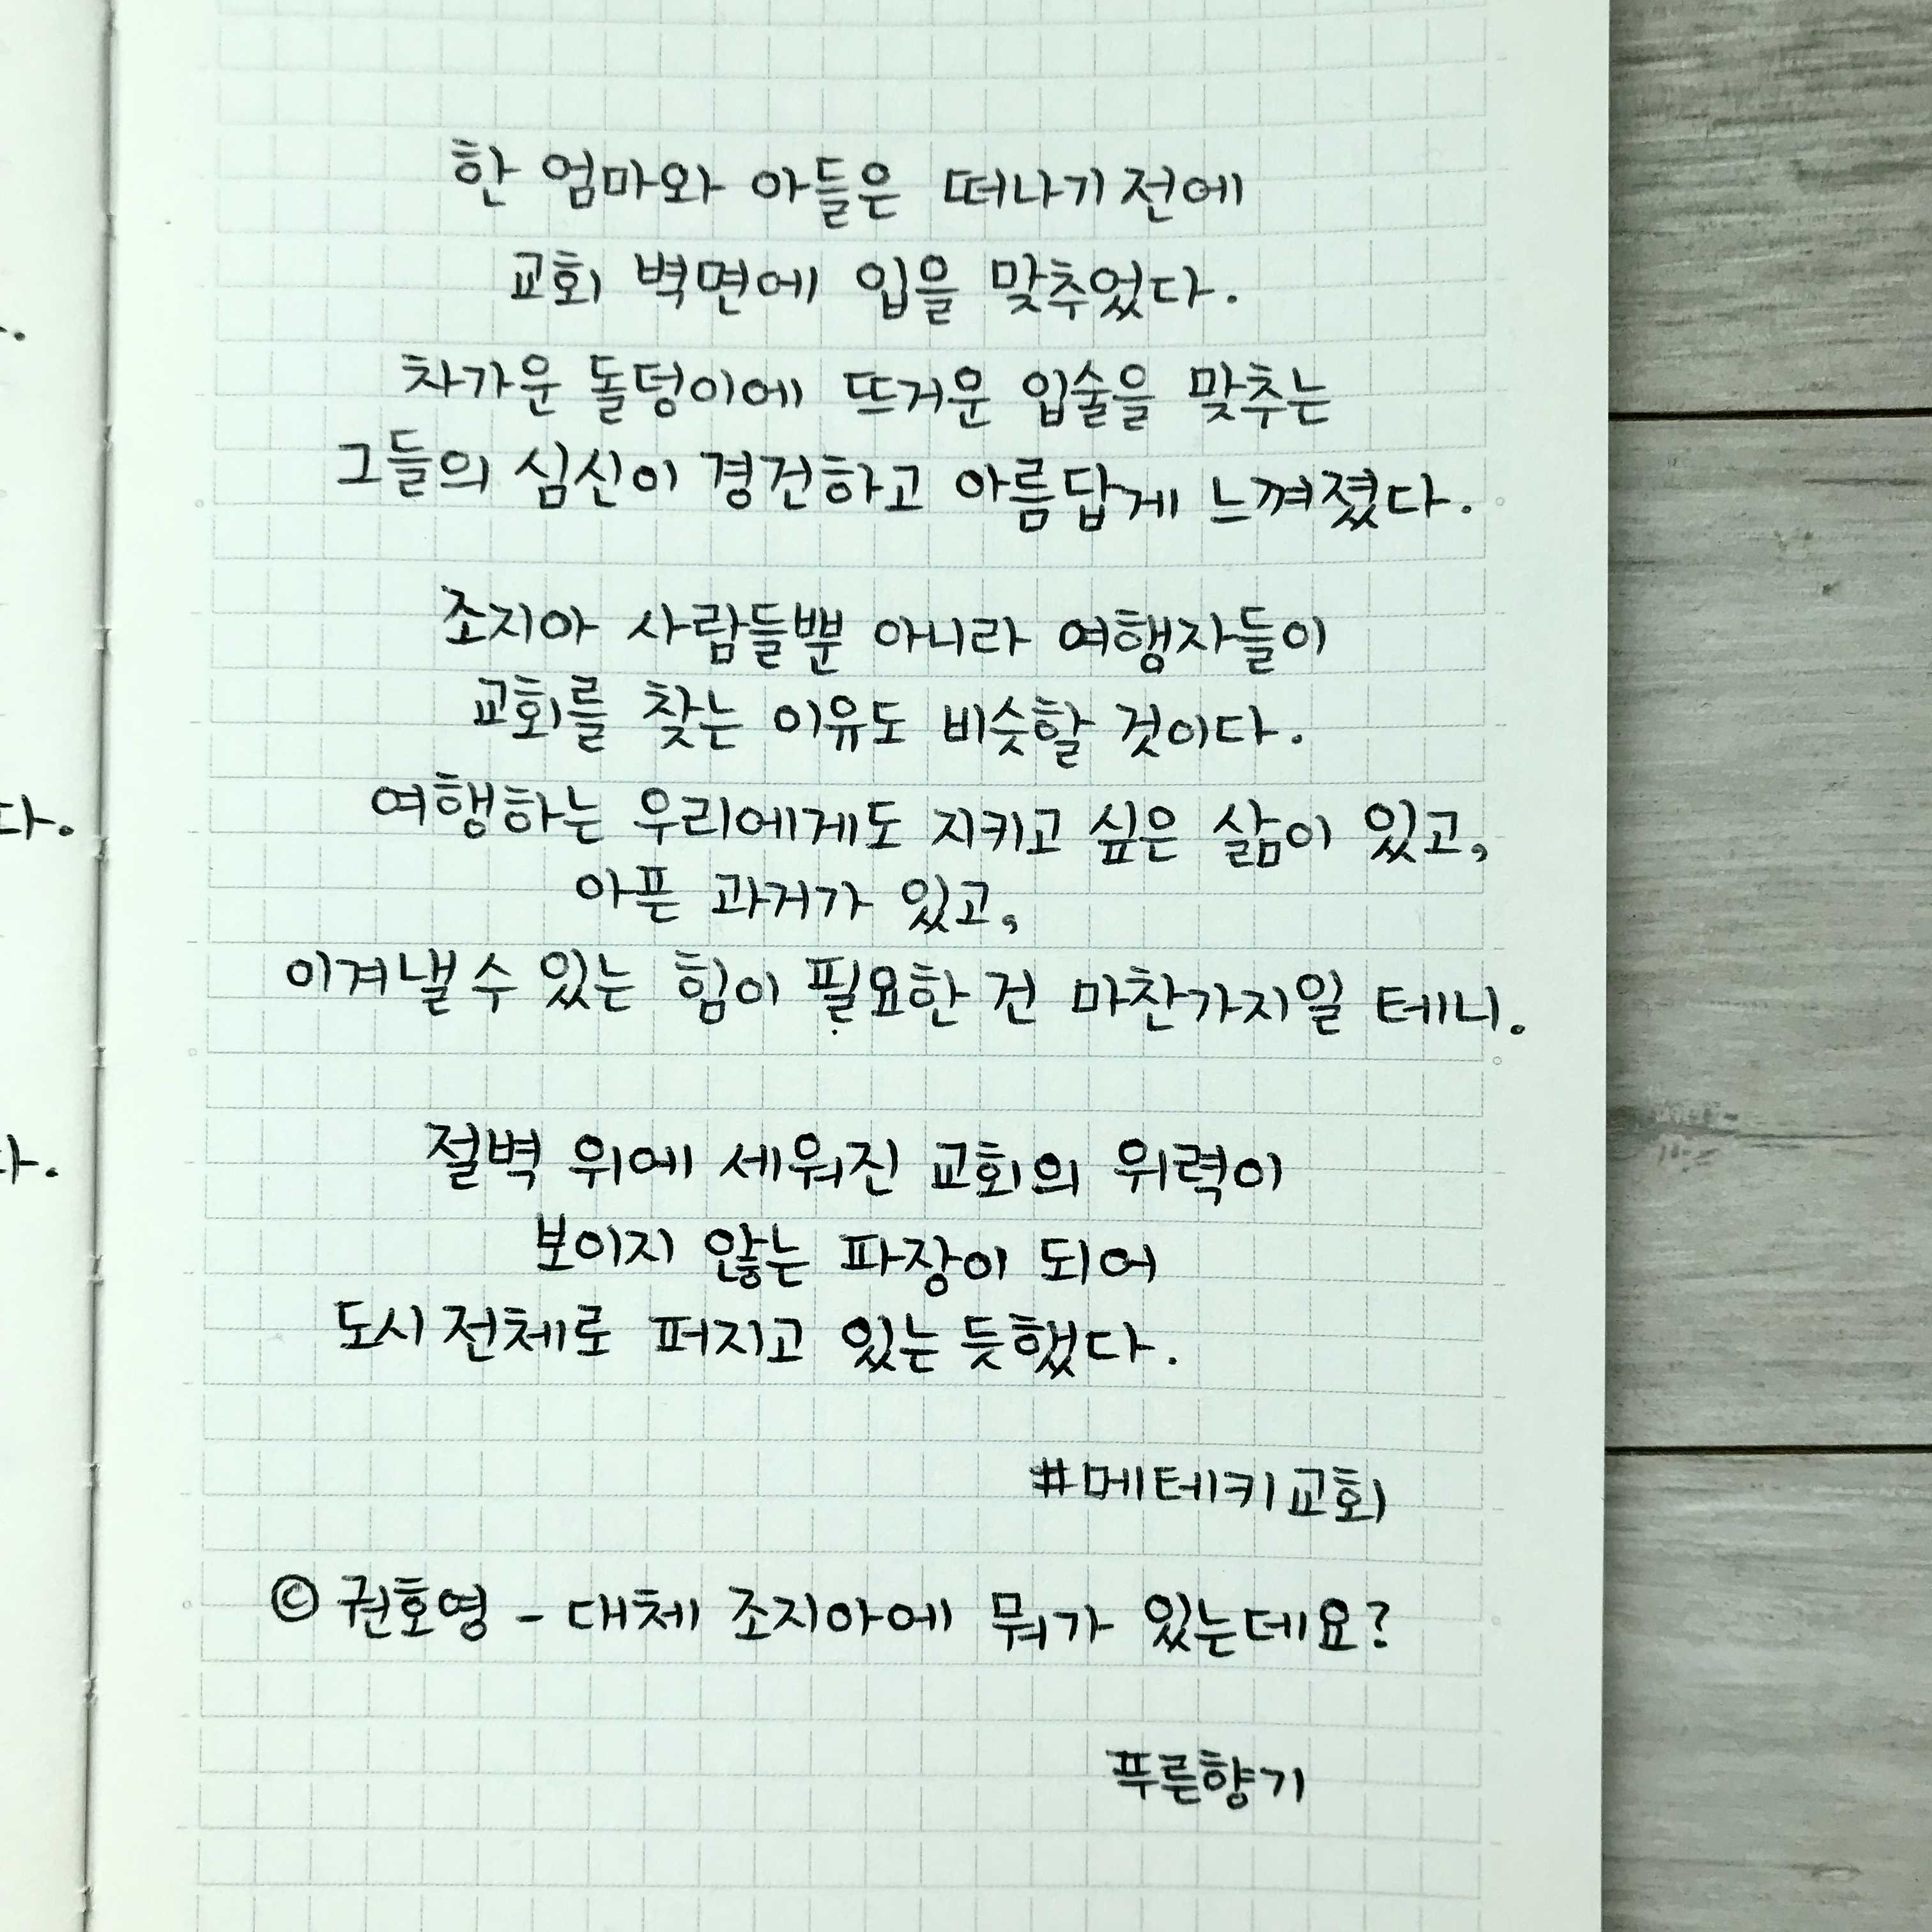 한 엄마와 아들은 떠나기 전에
교회 벽면에 입을 맞추었다.
차가운 돌덩이에 뜨거운 입술을 맞추는
그들의 심신이 경건하고 아름답게 느껴졌다.
조지아 사람들뿐 아니라 여행자들이
교회를 찾는 이유도 비슷할 것이다.
여행하는 우리에게도 지키고 싶은 삶이 있고,
아픈 과거가 있고,
이겨낼 수 있는 힘이 필요한 건 마찬가지일 테니.
절벽 위에 세워진 교회의 위력이
보이지 않는 파장이 되어
도시 전체로 퍼지고 있는 듯했다.
#메테키교회
© 권호영 - 대체 조지아에 뭐가 있는데요?
푸른향기
다.